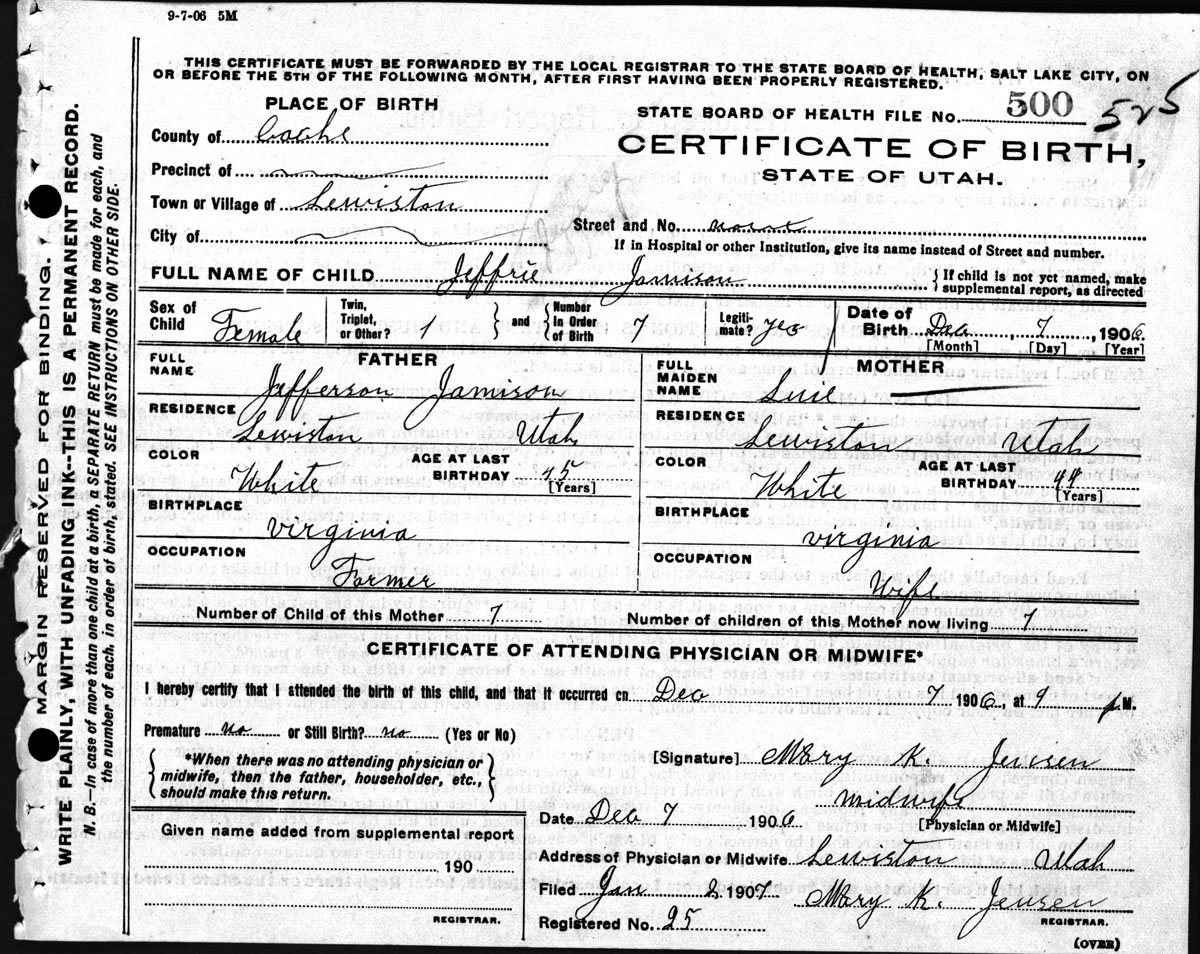 9-7-06 5M
THIS CERTIFICATE MUST BE FORWARDED BY THE LOCAL REGISTRAR TO THE STATE BOARD OF HEALTH, SALT LAKE CITY, ON
OR BEFORE THE 5TH OF THE FOLLOWING MONTH, AFTER FIRST HAVING BEEN PROPERLY REGISTERED.
PLACE OF BIRTH
STATE BOARD OF HEALTH FILE No. 500 525
County of
CERTIFICATE OF BIRTH,
STATE OF UTAH.
Precinct of
Town or Village of Lewiston
Street and No.
City of
If in Hospital or other Institution, give its name instead of Street and number.
FULL NAME OF CHILD Jeffrie Jamison
{ If child is not yet named, make
supplemental report, as directed
Sex of Child Female
Twin, Triplet, or Other? 1 } and { Number in Order of Birth 7
Legiti-mate? Yes
Date of Birth Dec 7, 1906
[Month] [Day] [Year]
FATHER
FULL NAME Jefferson Jamison
RESIDENCE
Lewiston Utah
COLOR White AGE AT LAST BIRTHDAY 45 [Years]
BIRTHPLACE
Virginia
OCCUPATION
Farmer
MOTHER
FULL MAIDEN NAME
RESIDENCE
Lewiston Utah
COLOR White AGE AT LAST BIRTHDAY 44 [Years]
BIRTHPLACE
Virginia
OCCUPATION
Wife
Number of Child of this Mother 7
Number of children of this Mother now living 7
CERTIFICATE OF ATTENDING PHYSICIAN OR MIDWIFE*
I hereby certify that I attended the birth of this child, and that it occurred on Dec 7 1906, at 9 p M.
Premature no or Still Birth? no (Yes or No)
{ *When there was no attending physician or
midwife, then the father, householder, etc.,
should make this return. }
[Signature] Mary K. Jensen
Midwife
[Physician or Midwife]
Date Dec 7 1906
Given name added from supplemental report
190
REGISTRAR.
Address of Physician or Midwife Lewiston Utah
Filed Jan 2 1907 Mary K. Jensen
REGISTRAR.
Registered No. 25
(OVER)
MARGIN RESERVED FOR BINDING.
WRITE PLAINLY, WITH UNFADING INK--THIS IS A PERMANENT RECORD.
N. B.—In case of more than one child at a birth, a SEPARATE RETURN must be made for each, and
the number of each, in order of birth, stated. SEE INSTRUCTIONS ON OTHER SIDE.